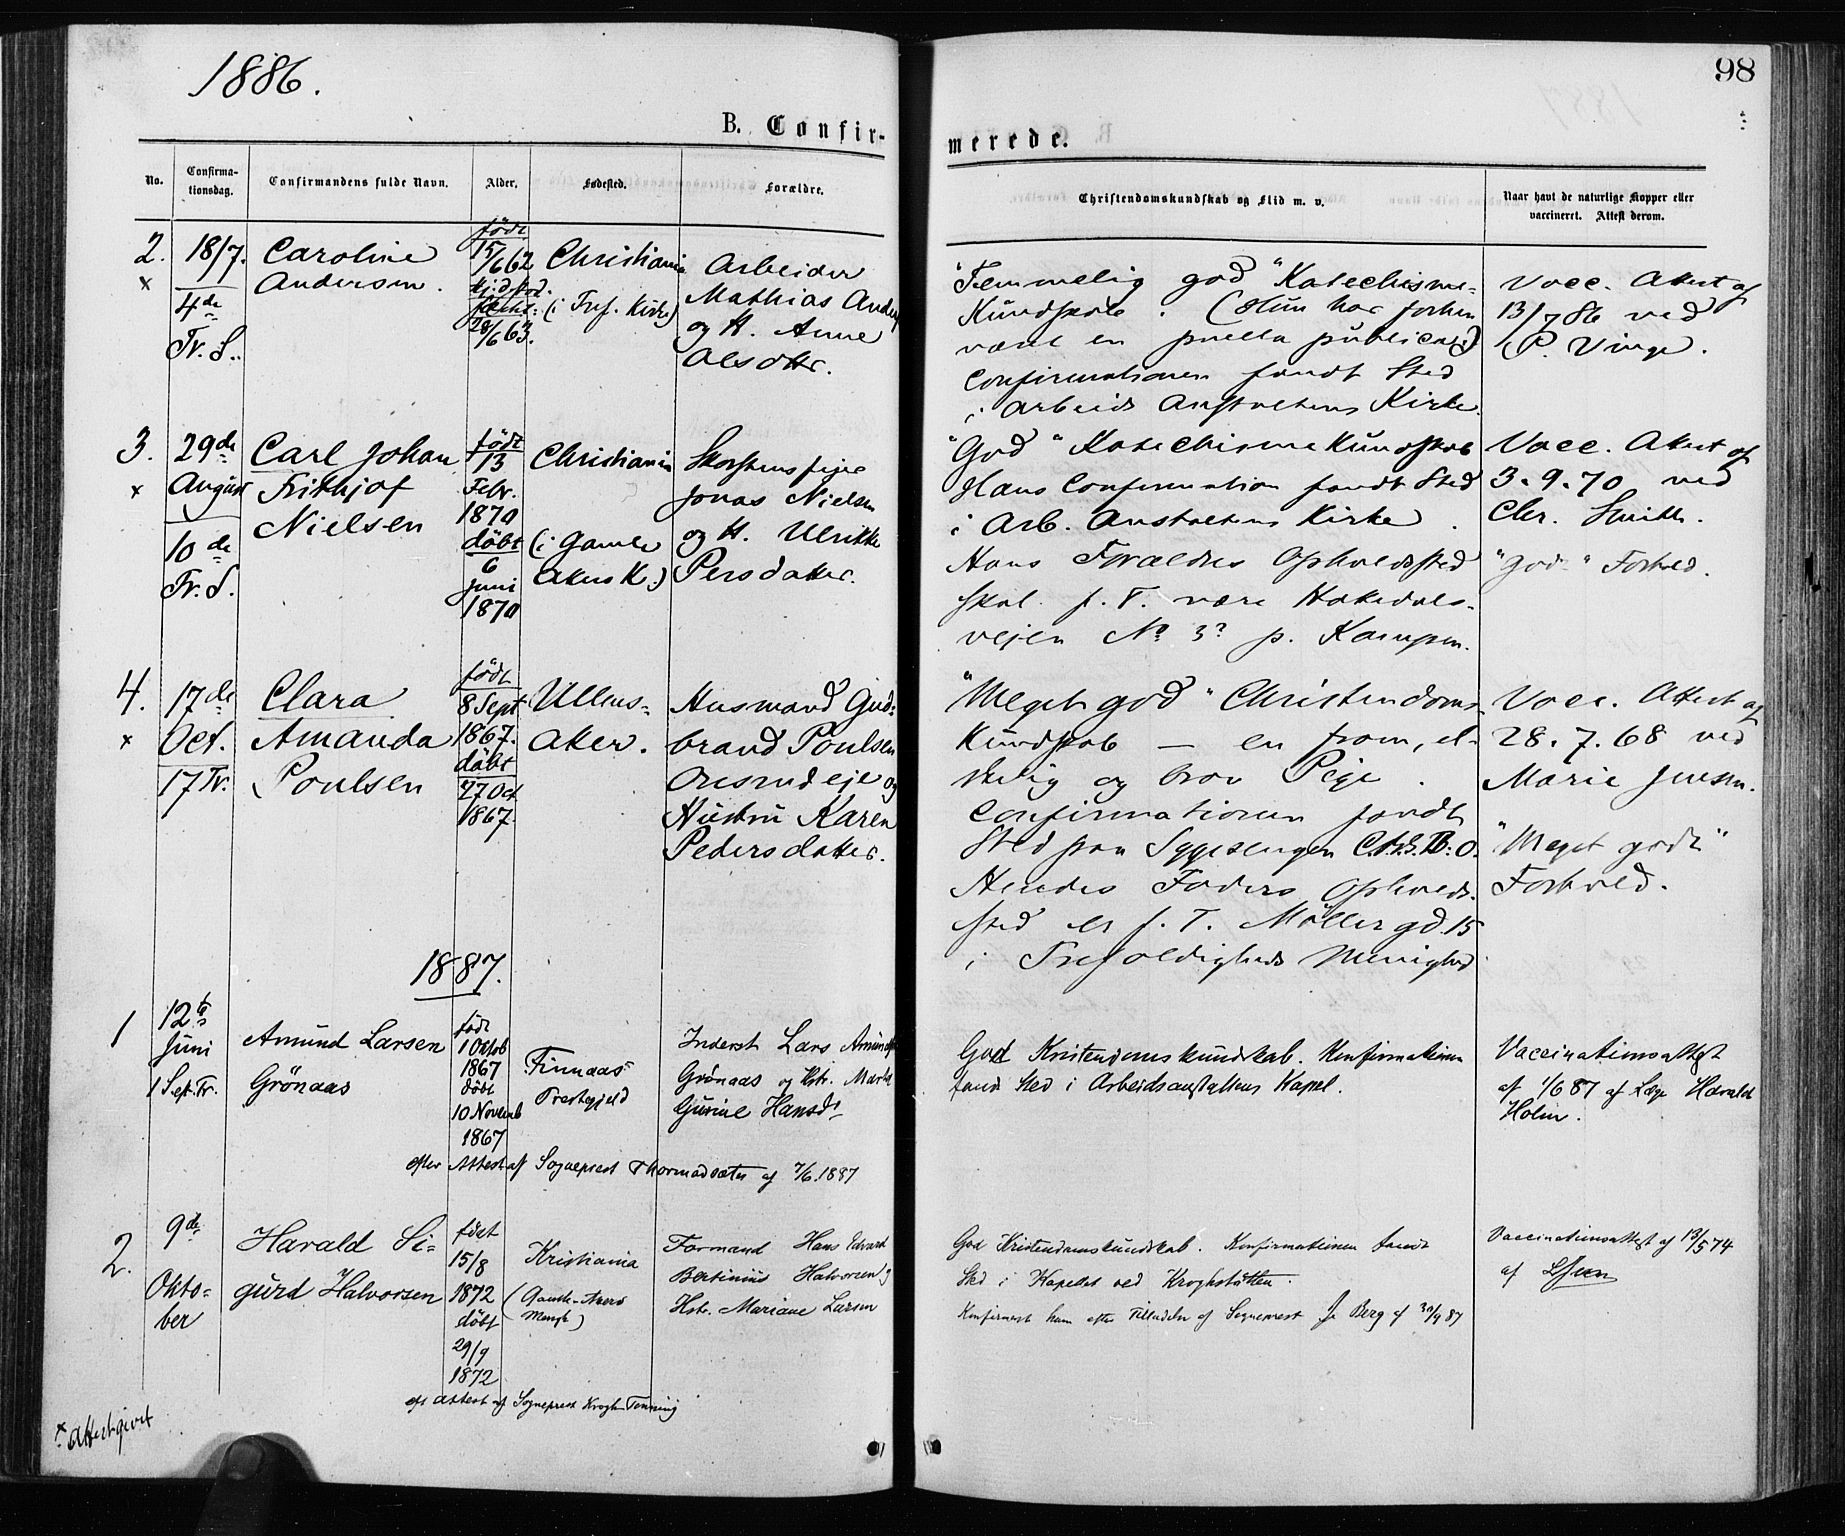 1886.
98
B. Confir-
merede.
No.
Confirma-
tionsdag.
Confirmandens fulde Navn.
Alder.
Fødested.
Forældre.
Christendomskundskab og Flid m. v.
Naar havt de naturlige Kopper eller
vaccineret. Attest derom.
2.
x
18/7.
4de
Tr. S.
Caroline
Andersen.
født
15/6 62
28/6 63.
Christiania
(i Tref. Kirke)
Arbeider
Mathias Anders
og H. Anne
Olsdttr.
"Temmelig god" Katechisme-
Kundskab. (Hun har forhen
været en puella publica.)
Confirmationen fandt Sted
i Arbeids Anstaltens Kirke.
Vacc. Attest af
13/7 86 ved
P. Vinge.
3.
x
29de
August
10de
Tr. S.
Carl Johan
Frithjof
Nielsen
født
13
Febr.
1870
döbt
6
Juni
1870
Christiania
(i Gamle
Akers K.)
Skorstensfeier
Jonas Nielsen
og H. Ulrikke
Persdatter.
"God" Katechisme Kundskab
Hans Confirmation fandt Sted
i Arb. Anstaltens Kirke.
Hans Forældres Opholdssted
skal f. T. være Hakedals-
vejen No 3? p. Kampen.
Vacc. Attest af
3.9.70 ved
Chr. Smith.
"god" Forhold.
4.
x
17de
Oct.
17 Tr.
Clara
Amanda
Poulsen
født
8 Sept
1867.
døbt
27 Oct
1867.
Ullens-
aker.
Husmand Gud-
brand Poulsen
eje og
Hustru Karen
Pedersdatter.
"Meget god" Christendoms-
Kundskab — en from, el-
skelig og brav Pige.
Confirmationen fandt
Sted paa Sygesengen
Hendes Faders Opholds-
sted er f. T. Møllergd 15
i Trefoldigheds Menighed
Vacc. Attest af
28.7.68 ved
Marie Jensen.
"Meget godt"
Forhold.
1887.
1
12te
Juni
1 S.eft.Tr.
Amund Larsen
Grönaas
født
1 Oktob
1867
døbt
10 Novemb
1867
Finnaas
Prestegjeld
Inderst Lars Amunds
Grönaas og Hstr. Marta
Gurine Hansd
God Kristendomskundskab. Konfirmationen
fand sted i Arbeidsanstaltens Kapel.
Vaccinationsattest
af 1/6 87 af Læge Harald
Holm.
efter Attest af Sogneprest Thormodsæter af 7/6.1887
2.
9de
Okto-
ber
Harald Si-
gurd Halvorsen
født
15/8
1872
døbt
29/9
1872
Kristiania
(Gamle-Akers
Mengh)
Formand Hans Edvard
Bertinius Halvorsen og
Hstr. Mariane Larsen
God Kristendomskundskab. Konfirmationen fandt
Sted i Kapellet ved Kroghstötten.
Konfirmert ham efter Tilladelse af Sogneprest J. Berg af 30/9 87
Vaccinationsattest af 13/5 74
af
eft Attest af Sogneprest Krogh-Tonning
x Attest givet